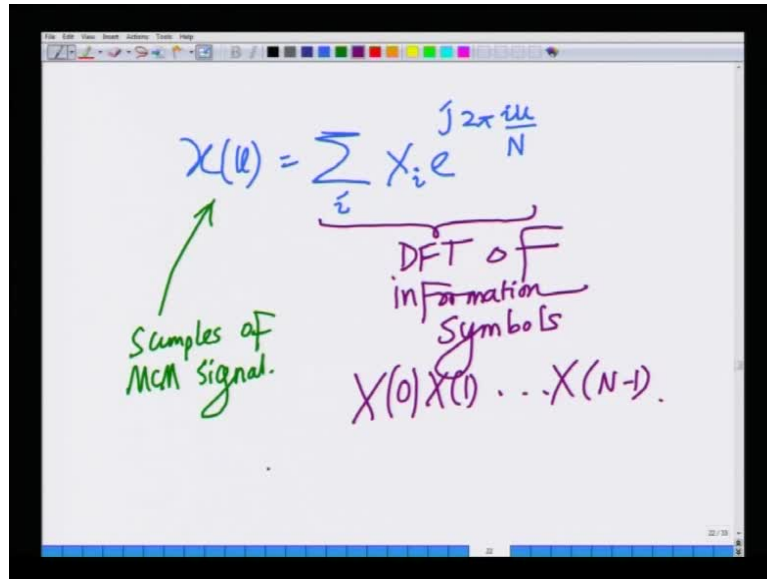 File Edit View Insert Actions Tools Help
x(u) = ∑_i X_i e^{j2π iu/N}
DFT of
information
symbols
Samples of
MCM signal.
X(0) X(1) . . . X(N-1).
22/33
22